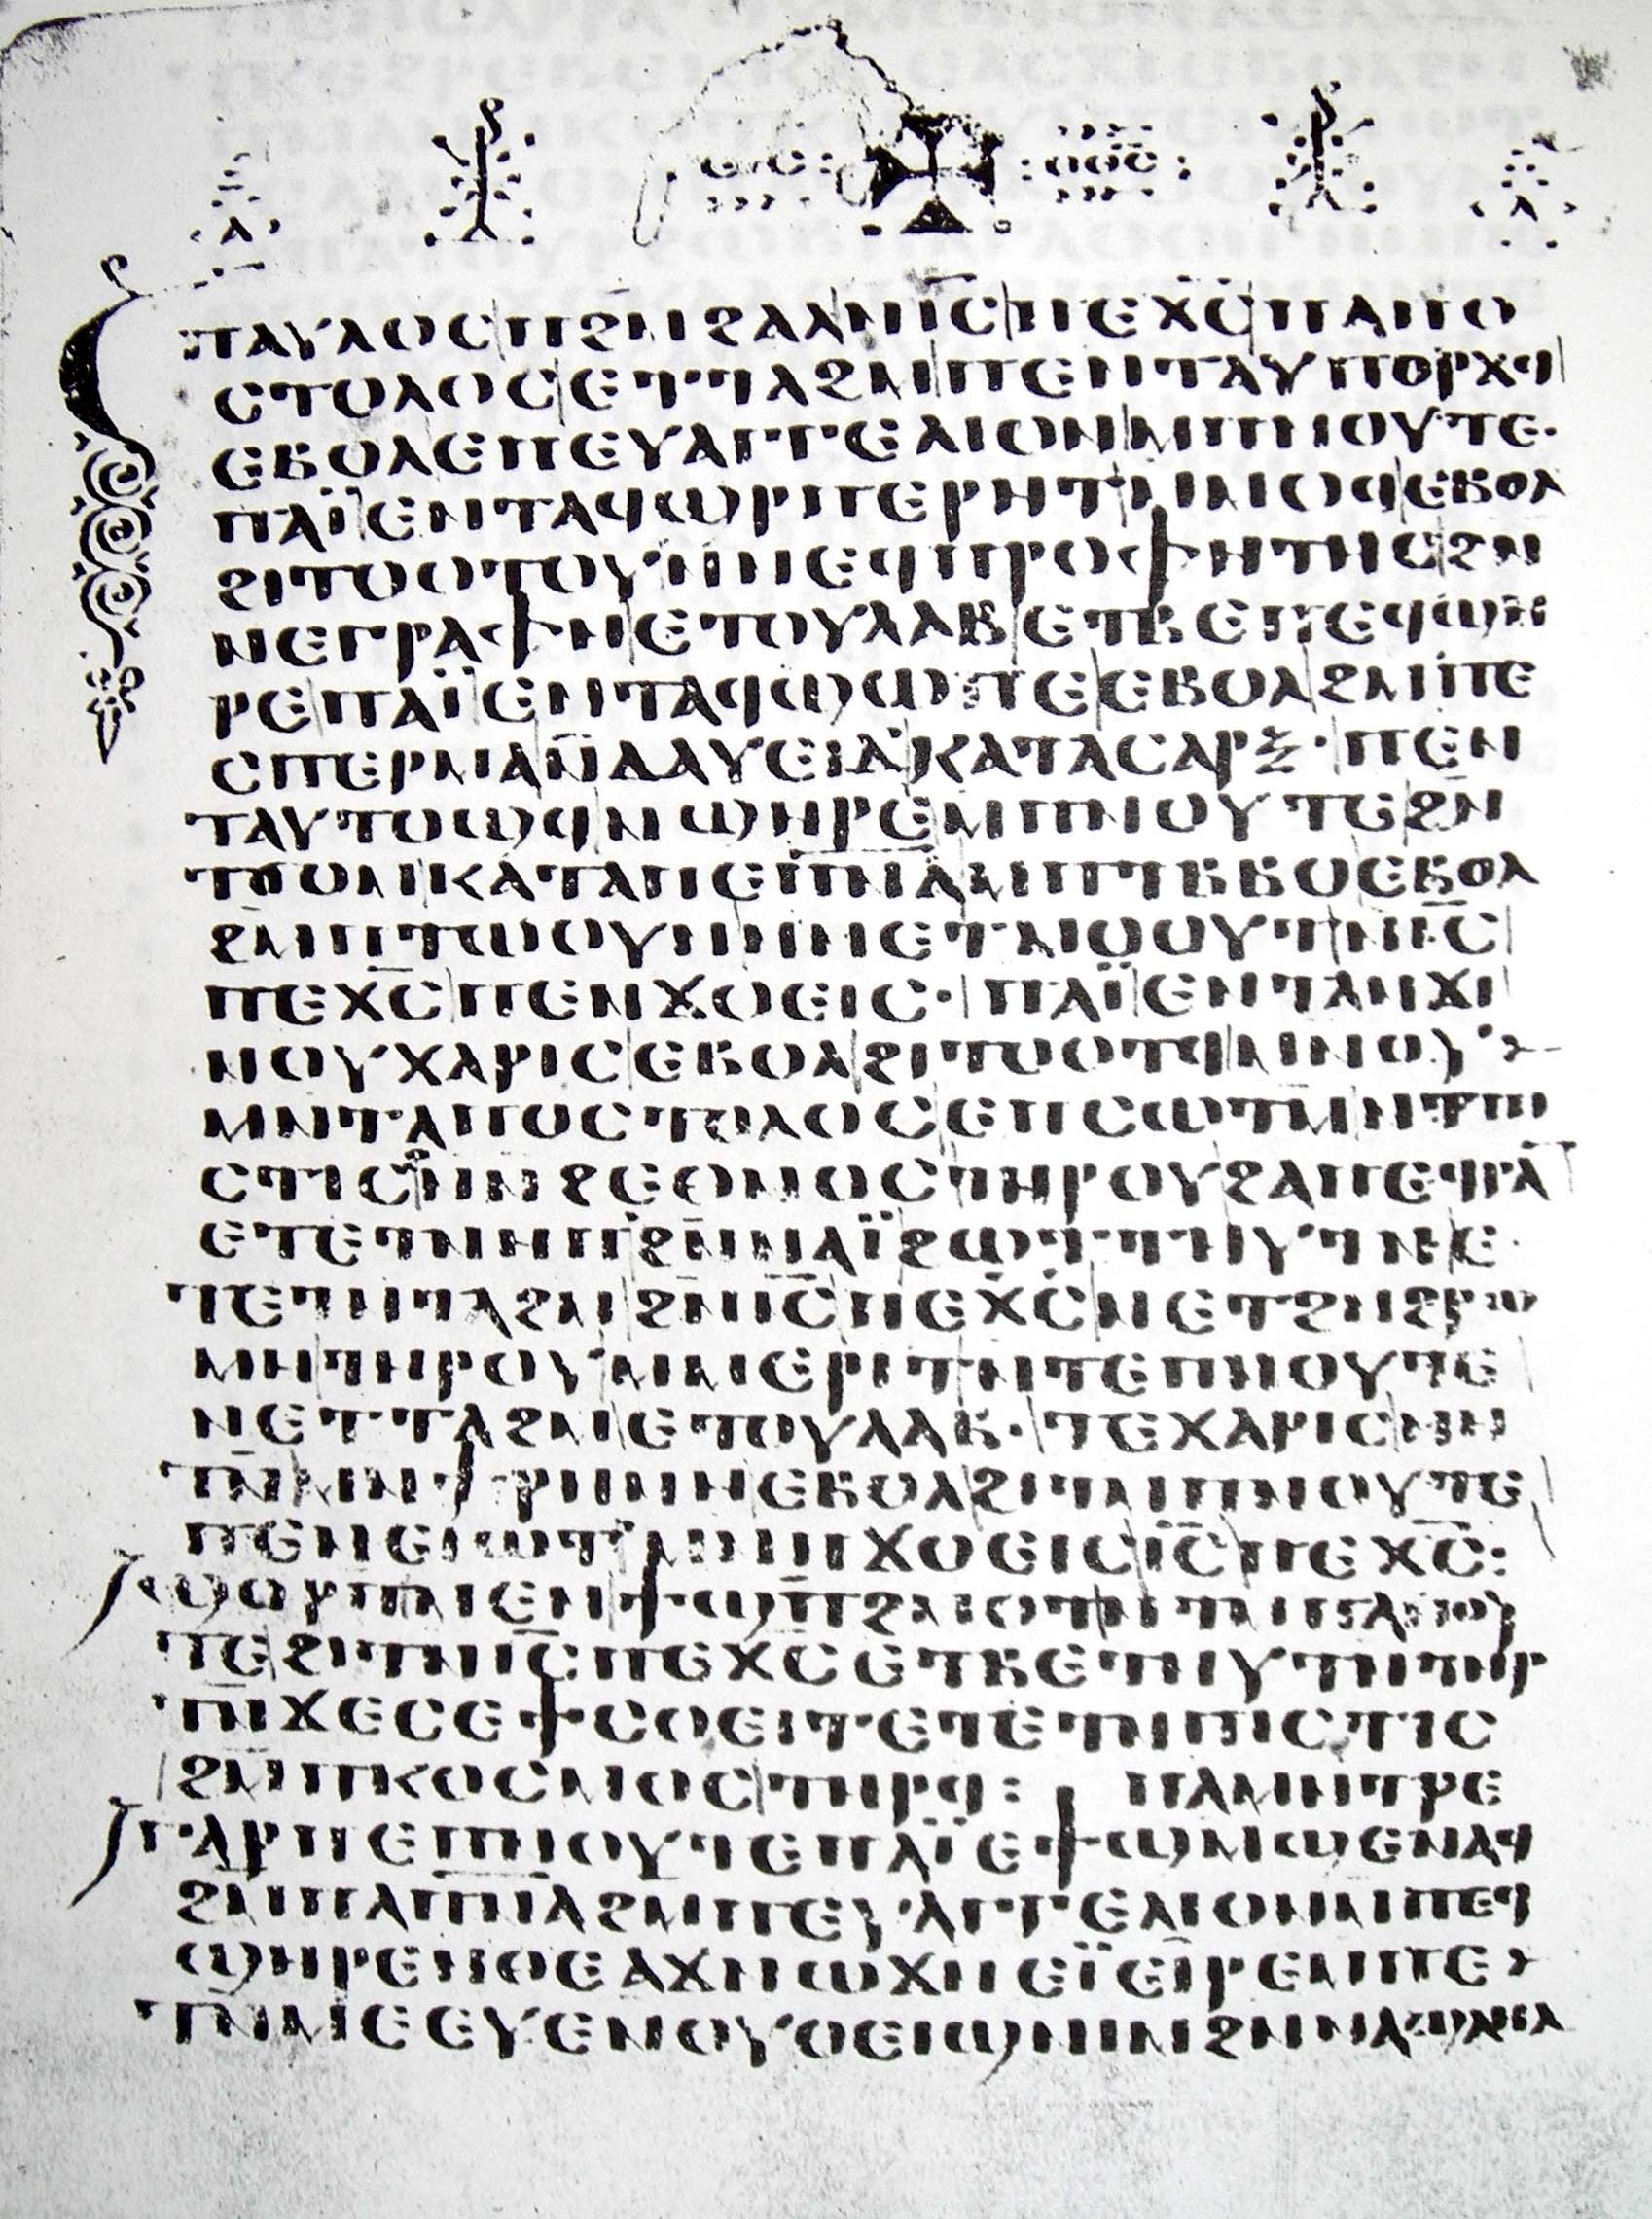 ⲁ ⲓⲥ ⲡⲉⲭⲥ ⲁ
ⲡⲁⲩⲗⲟⲥ ⲡϩⲙϩⲁⲗ ⲛⲓⲥ ⲡⲉⲭⲥ ⲡⲁⲡⲟ
ⲥⲧⲟⲗⲟⲥ ⲉⲧⲧⲁϩⲙ ⲡⲉⲛⲧⲁⲩⲡⲟⲣϫϥ
ⲉⲃⲟⲗ ⲉⲡⲉⲩⲁⲅⲅⲉⲗⲓⲟⲛ ⲙⲡⲛⲟⲩⲧⲉ·
ⲡⲁⲓ̈ ⲉⲛⲧⲁϥϣⲣⲡⲉⲣⲏⲧ ⲙⲙⲟϥ ⲉⲃⲟⲗ
ϩⲓⲧⲟⲟⲧⲟⲩ ⲛⲛⲉϥⲡⲣⲟⲫⲏⲧⲏⲥ ϩⲛ
ⲛⲉⲅⲣⲁⲫⲏ ⲉⲧⲟⲩⲁⲁⲃ ⲉⲧⲃⲉ ⲡⲉϥϣⲏ
ⲣⲉ ⲡⲁⲓ̈ ⲉⲛⲧⲁϥϣⲱⲡⲉ ⲉⲃⲟⲗ ϩⲙ ⲡⲉ
ⲥⲡⲉⲣⲙⲁ ⲛ̄ⲇⲁⲩⲉⲓⲇ ⲕⲁⲧⲁ ⲥⲁⲣⲝ· ⲡⲉⲛ
ⲧⲁⲩⲧⲟϣϥ ⲛϣⲏⲣⲉ ⲙⲡⲛⲟⲩⲧⲉ ϩⲛ̄
ⲧϭⲟⲙ ⲕⲁⲧⲁ ⲡⲉⲡ̅ⲛ̅ⲁ̅ ⲙⲡⲧⲃⲃⲟ ⲉⲃⲟⲗ
ϩⲙ ⲡⲧⲱⲟⲩⲛ ⲛⲛⲉⲧⲙⲟⲟⲩⲧ ⲛⲓ̅ⲥ̅
ⲡⲉⲭ̅ⲥ̅ ⲡⲉⲛϫⲟⲉⲓⲥ· ⲡⲁⲓ̈ ⲉⲛⲧⲁⲛϫⲓ
ⲛⲟⲩⲭⲁⲣⲓⲥ ⲉⲃⲟⲗ ϩⲓⲧⲟⲟⲧϥ ⲙⲛ ⲟⲩ
ⲙⲛⲧⲁⲡⲟⲥⲧⲟⲗⲟⲥ ⲉⲡⲥⲱⲧⲙ ⲛⲧⲡⲓ
ⲥⲧⲓⲥ ϩⲛ ⲛϩⲉⲑⲛⲟⲥ ⲧⲏⲣⲟⲩ ϩⲁ ⲡⲉϥⲣⲁⲛ
ⲉⲧⲉⲧⲛⲏⲡ ϩⲛ̄ ⲛⲁⲓ̈ ϩⲱⲧⲧⲏⲩⲧⲛ ⲉ·
ⲧⲉⲧⲛⲧⲁϩⲙ ϩⲛ ⲓ̅ⲥ̅ ⲡⲉⲭ̅ⲥ̅ ⲛⲉⲧϩⲛ ϩⲣⲱ
ⲙⲏ ⲧⲏⲣⲟⲩ ⲙⲙⲉⲣⲓⲧ ⲛⲧⲉ ⲡⲛⲟⲩⲧⲉ
ⲛⲉⲧⲧⲁϩⲙ ⲉⲧⲟⲩⲁⲁⲃ· ⲧⲉⲭⲁⲣⲓⲥ ⲛⲏ
ⲧⲛ̄ ⲙⲛ ϯⲣⲏⲛⲏ ⲉⲃⲟⲗ ϩⲓⲧⲙ ⲡⲛⲟⲩⲧⲉ
ⲡⲉⲛⲉⲓⲱⲧ ⲙⲛ ⲡϫⲟⲉⲓⲥ ⲓ̅ⲥ̅ ⲡⲉⲭ̅ⲥ̅:
ϣⲟⲣⲡ ⲙⲉⲛ ϯϣⲡ̄ϩⲙⲟⲧ ⲛⲧⲙ ⲡⲁⲛⲟⲩ
ⲧⲉ ϩⲓⲧⲛ ⲓ̅ⲥ̅ ⲡⲉⲭⲥ ⲉⲧⲃⲉ ⲧⲏⲩⲧⲛ ⲧⲏⲣ
ⲧⲛ̄ ϫⲉ ⲥⲉϯⲥⲟⲉⲓⲧ ⲉⲧⲉⲧⲛⲡⲓⲥⲧⲓⲥ
ϩⲙ̄ ⲡⲕⲟⲥⲙⲟⲥ ⲧⲏⲣϥ: ⲡⲁⲙⲛⲧⲣⲉ
ⲅⲁⲣ ⲡⲉ ⲡⲛⲟⲩⲧⲉ ⲡⲁⲓ̈ ⲉϯϣⲙϣⲉ ⲛⲁϥ
ϩⲙ̄ ⲡⲁⲡ̅ⲛ̅ⲁ̅ ϩⲙ ⲡⲉⲩⲁⲅⲅⲉⲗⲓⲟⲛ ⲙⲡⲉϥ
ϣⲏⲣⲉ ⲛⲑⲉ ⲁϫⲛ ⲱϫⲛ ⲉⲓ̈ⲉⲓⲣⲉ ⲙⲡⲉ
ⲧⲛ̄ⲙⲉⲉⲩⲉ ⲛⲟⲩⲟⲉⲓϣ ⲛⲓⲙ ϩⲛ ⲛⲁϣⲗⲏⲗ